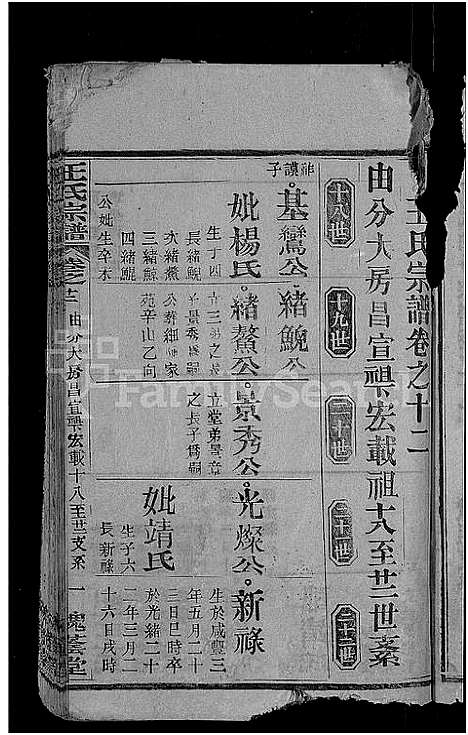 王氏宗譜卷之十二
由分大房昌宣興宏載祖十八至廿二世系
十八世
十九世
二十世
二十一世
二十二世
禎子
基鸞公
緒鯢公
妣楊氏
生子四
長緒鯢
次緒鰲
三緒鯀
四緒鯤
公妣生卒未
緒鰲公
景秀公
立堂弟景章
之長子為嗣
公葬
家
苑辛山乙向
光燦公
新祿
生於咸豐三
年五月二十
三日巳時卒
於光緒二十
二年三月二
十六日戌時
妣靖氏
生子六
長新祿
王氏宗譜
卷之十二
由分大房昌宣興宏載十八至廿二支系
一
槐蔭堂
FamilySearch